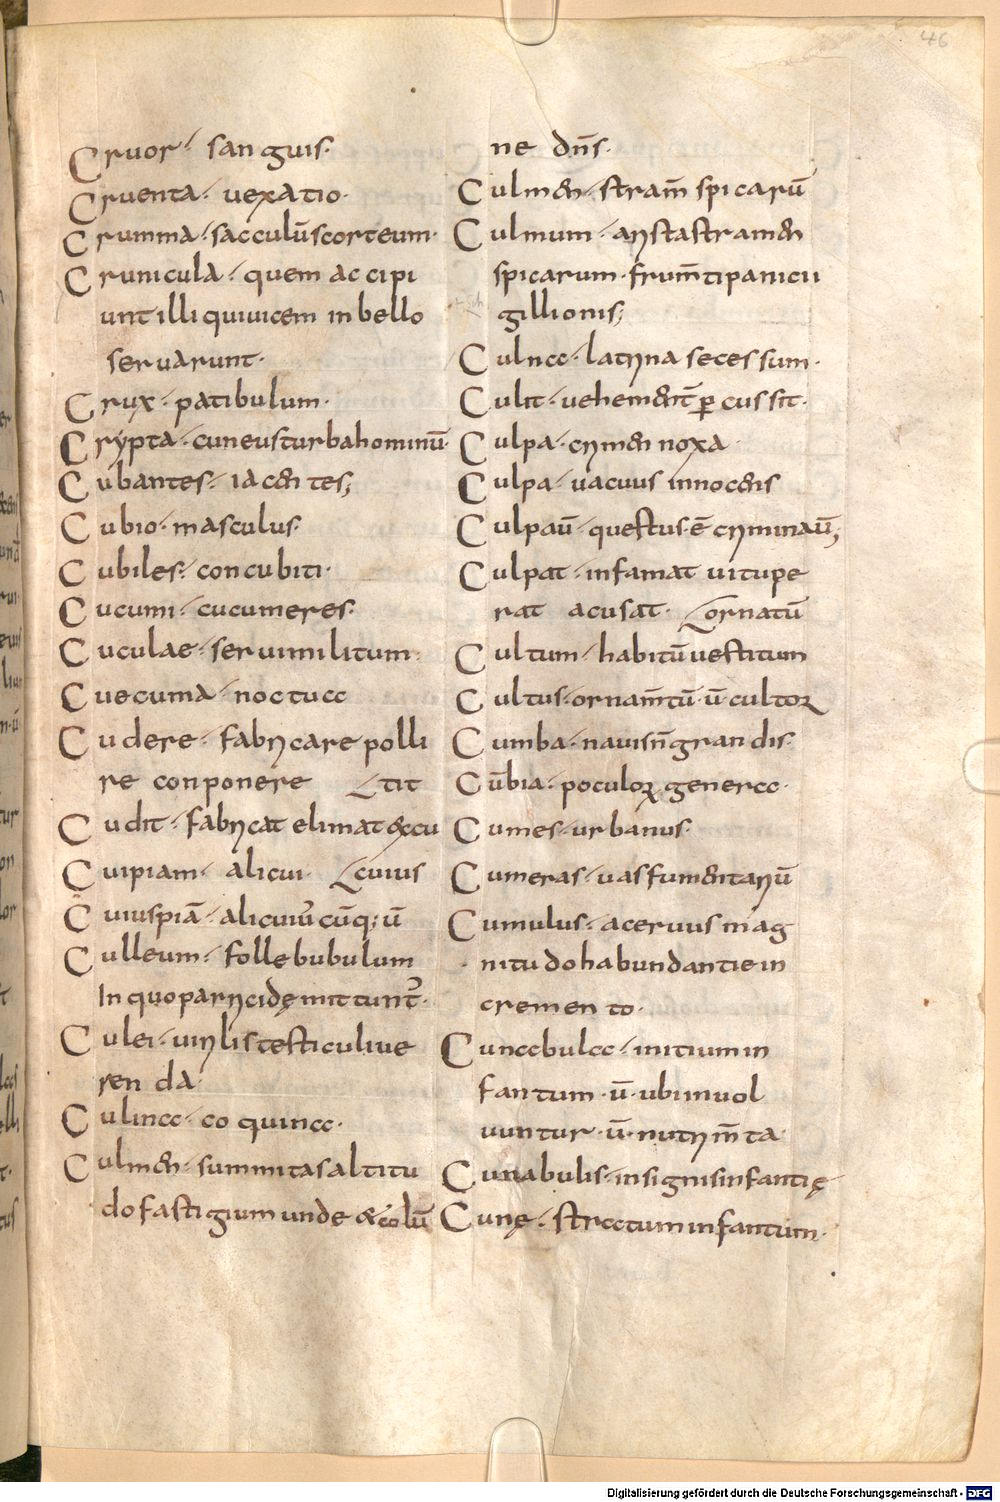 46
Cruor· sanguis·
Cruenta· uexatio·
Crumma· sacculūscorteum·
Crunicula· quem accipi
unt illi quiuicem inbello
seruarunt·
Crux· patibulum·
Crẏpta· cuneusturbahominū
Cubantes· iacentes;
Cubio· masculus·
Cubiles· concubiti·
Cucumi· cucumeres·
Cuculae· seruimilitum·
Cuecuma· noctuac
Cudere· fabricarepolli
re conponere tit
Cudit· fabricat elimat &xcu
Cuipiam· alicui· cuius
Cuiuspiā· alicuiuˀcūq; ū
Culleum· follebubulum
Inquoparricidęmittuntˀ·
Culei· uirilistesticuliue
renda·
Culinae· coquinae·
Culmen· summitasaltitu
dofastigiumunde &colū
ne dn̄s·
Culmen· stram̄ spicarū
Culmum· aristastramen
spicarum· frum̄tipanicii
gillionis;
Culnae· latrina secessum·
Culit· uehement̄ ꝑcussit·
Culpa· crimen noxa
Culpa· uacuus innocens
Culpaū· questus· ē criminaū;
Culpat· infamat uitupe
rat acusat· ornatū
Cultum· habitūuestitum
Cultus· ornam̄tū· ū· cultoꝝ
Cumba· nauisn̄grandis·
Cūbia· poculoꝝ generae·
Cumes· urbanus·
Cumeras· uasfumentariū
Cumulus· aceruus mag
nitudohabundantiein
cremento·
Cunaebulae· initiumin
fantum· ū· ubiinuol
uuntur· ū· nutrim̄ta
Cunabulis· insignisinfantię
Cunę· stractuminfantum·
Digitalisierung gefördert durch die Deutsche Forschungsgemeinschaft - DFG